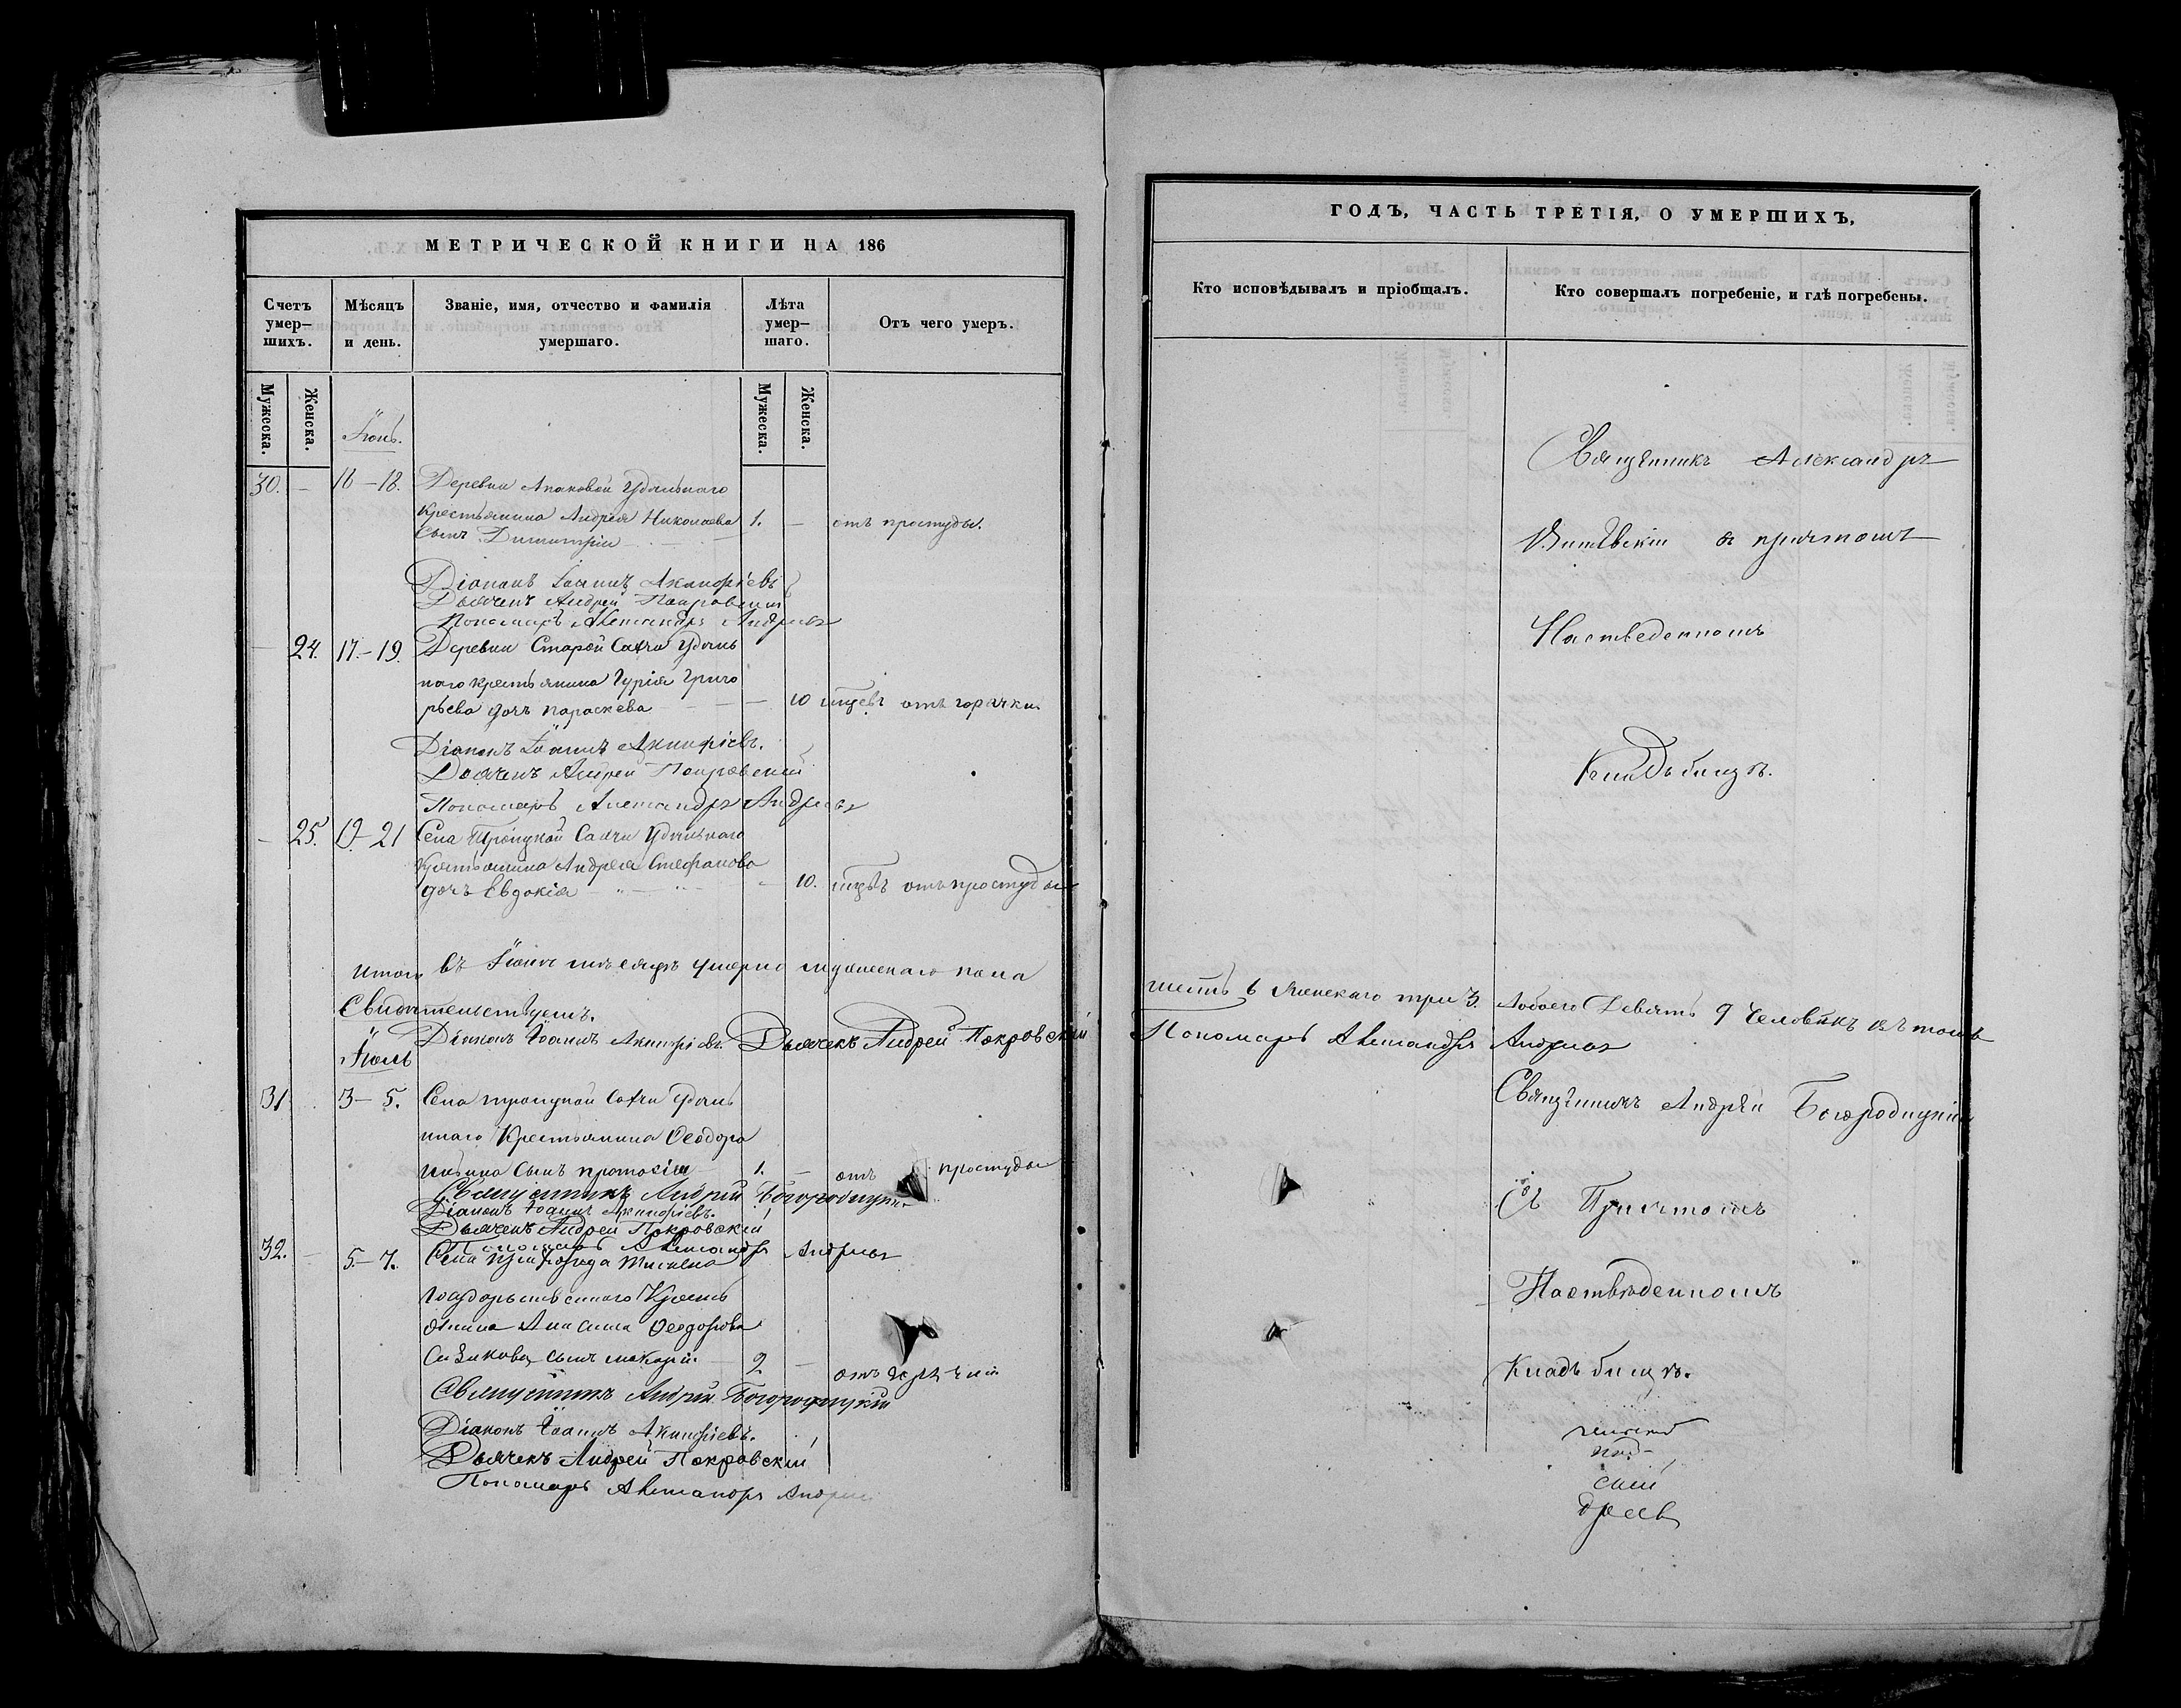 МЕТРИЧЕСКОЙ КНИГИ НА 186
Счетъ умер-шихъ.
Мѣсяцъ и день.
Званіе, имя, отчество и фамилія умершаго.
Лѣта умер-шаго.
Отъ чего умеръ.
Мужеска.
Женска.
Мужеска.
Женска.
Іюнь.
30. — 16-18. Деревни Апаковой Удѣльнаго
Крестьянина Андрея Николаева 1. — отъ простуды.
Сынъ Димитрій
Діаконъ Іоаннъ Акинфіевъ
Дьячекъ Андрей Покровскій
Пономарь Александръ Андреевъ
— 24. 17-19. Деревни Старой Сахчи Удѣль
наго крестьянина Гурія Григо
рьева дочь Параскева — 10 мцевъ отъ горячки
Діаконъ Іоаннъ Акинфіевъ.
Дьячекъ Андрей Покровскій
Пономарь Александръ Андреевъ
— 25. 19-21 Села Троицкой Сахчи Удѣльнаго
Крестьянина Андрея Стефанова
дочь Евдокія — 10. мцевъ отъ простуды
Итого въ Іюнѣ мѣсяцѣ умерло мужескаго пола
Свидѣтельствуемъ.
Діаконъ Іоаннъ Акинфіевъ. Дьячекъ Андрей Покровскій
Іюль
31 3-5. Села Троицкой Сахчи Удѣль
наго Крестьянина Ѳеодора
сынъ 1. — отъ простуды
Священникъ Андрей Богородицкій
Діаконъ Іоаннъ Акинфіевъ.
Дьячекъ Андрей Покровскій
Пономарь Александръ Андреевъ
32. — 5-7. Села
Государственнаго Кресть
янина Ѳеодорова
сынъ Макарій 2 — отъ
Священникъ Андрей Богородицкій
Діаконъ Іоаннъ Акинфіевъ.
Дьячекъ Андрей Покровскій
Пономарь Александръ Андреев
ГОДЪ, ЧАСТЬ ТРЕТІЯ, О УМЕРШИХЪ,
Кто исповѣдывалъ и пріобщалъ.
Кто совершалъ погребеніе, и гдѣ погребены.
Священникъ Александръ
съ причтомъ
На отведенномъ
Кладбищѣ.
шесть 6 Женскаго три 3. Обоего Девять 9 Человѣкъ въ томъ
Пономарь Александръ Андреевъ
Священникъ Андрей Богородицкій
Съ Причтомъ
На отведенномъ
Кладбищѣ.